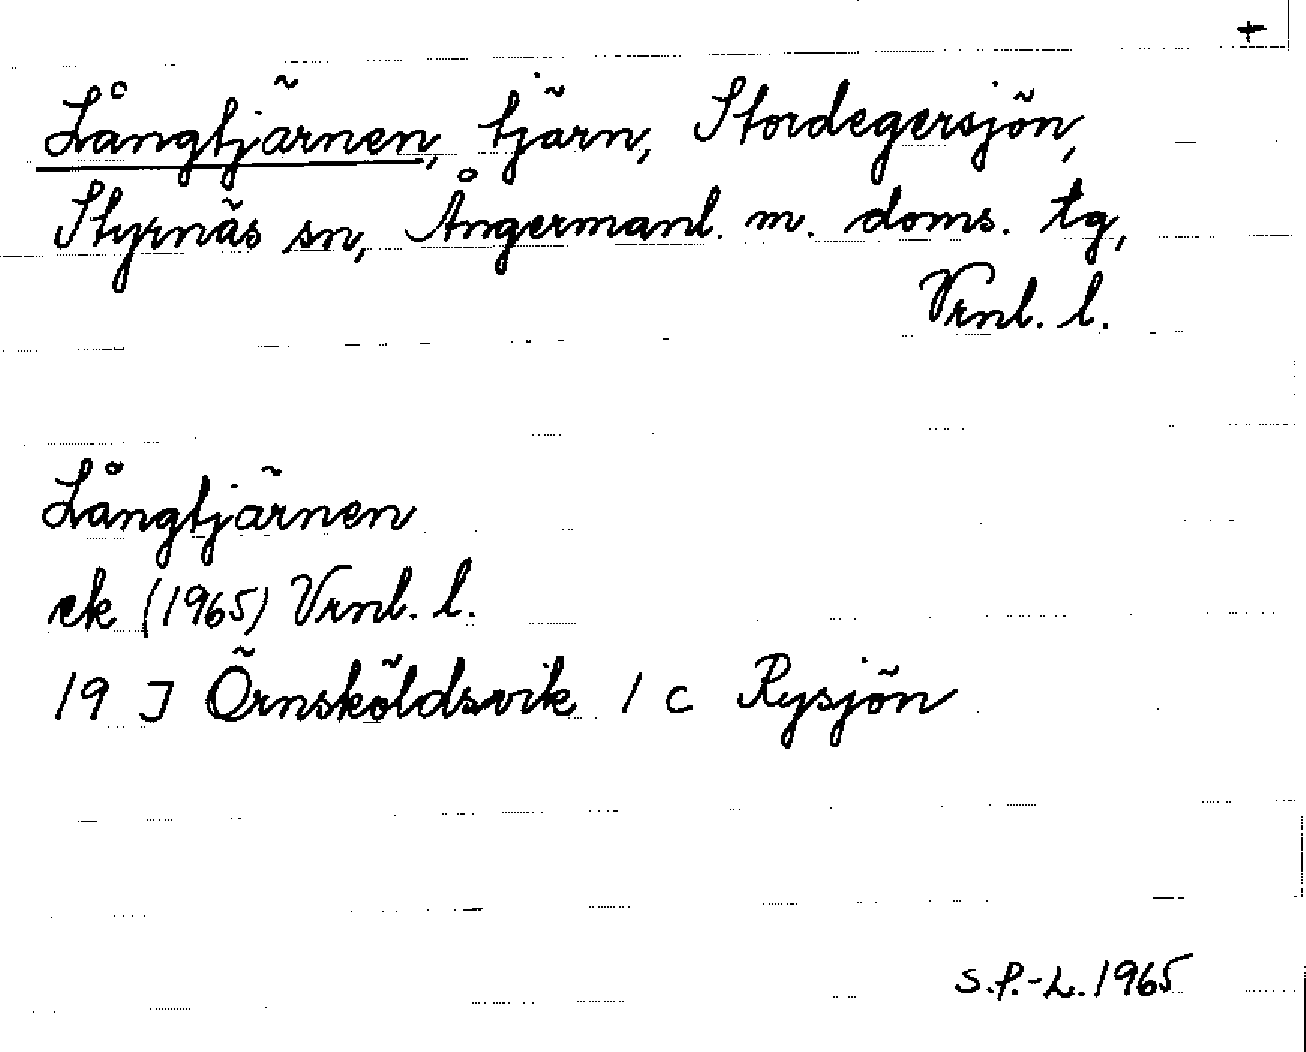 +
Långtjärnen, tjärn, Stordegersjön,
Styrnäs sn, Ångermanl. m. doms. tg,
Vrnl. l.
Långtjärnen
ek (1965) Vrnl. l.
19 J Örnsköldsvik 1 c Rysjön
S.P.-L. 1965